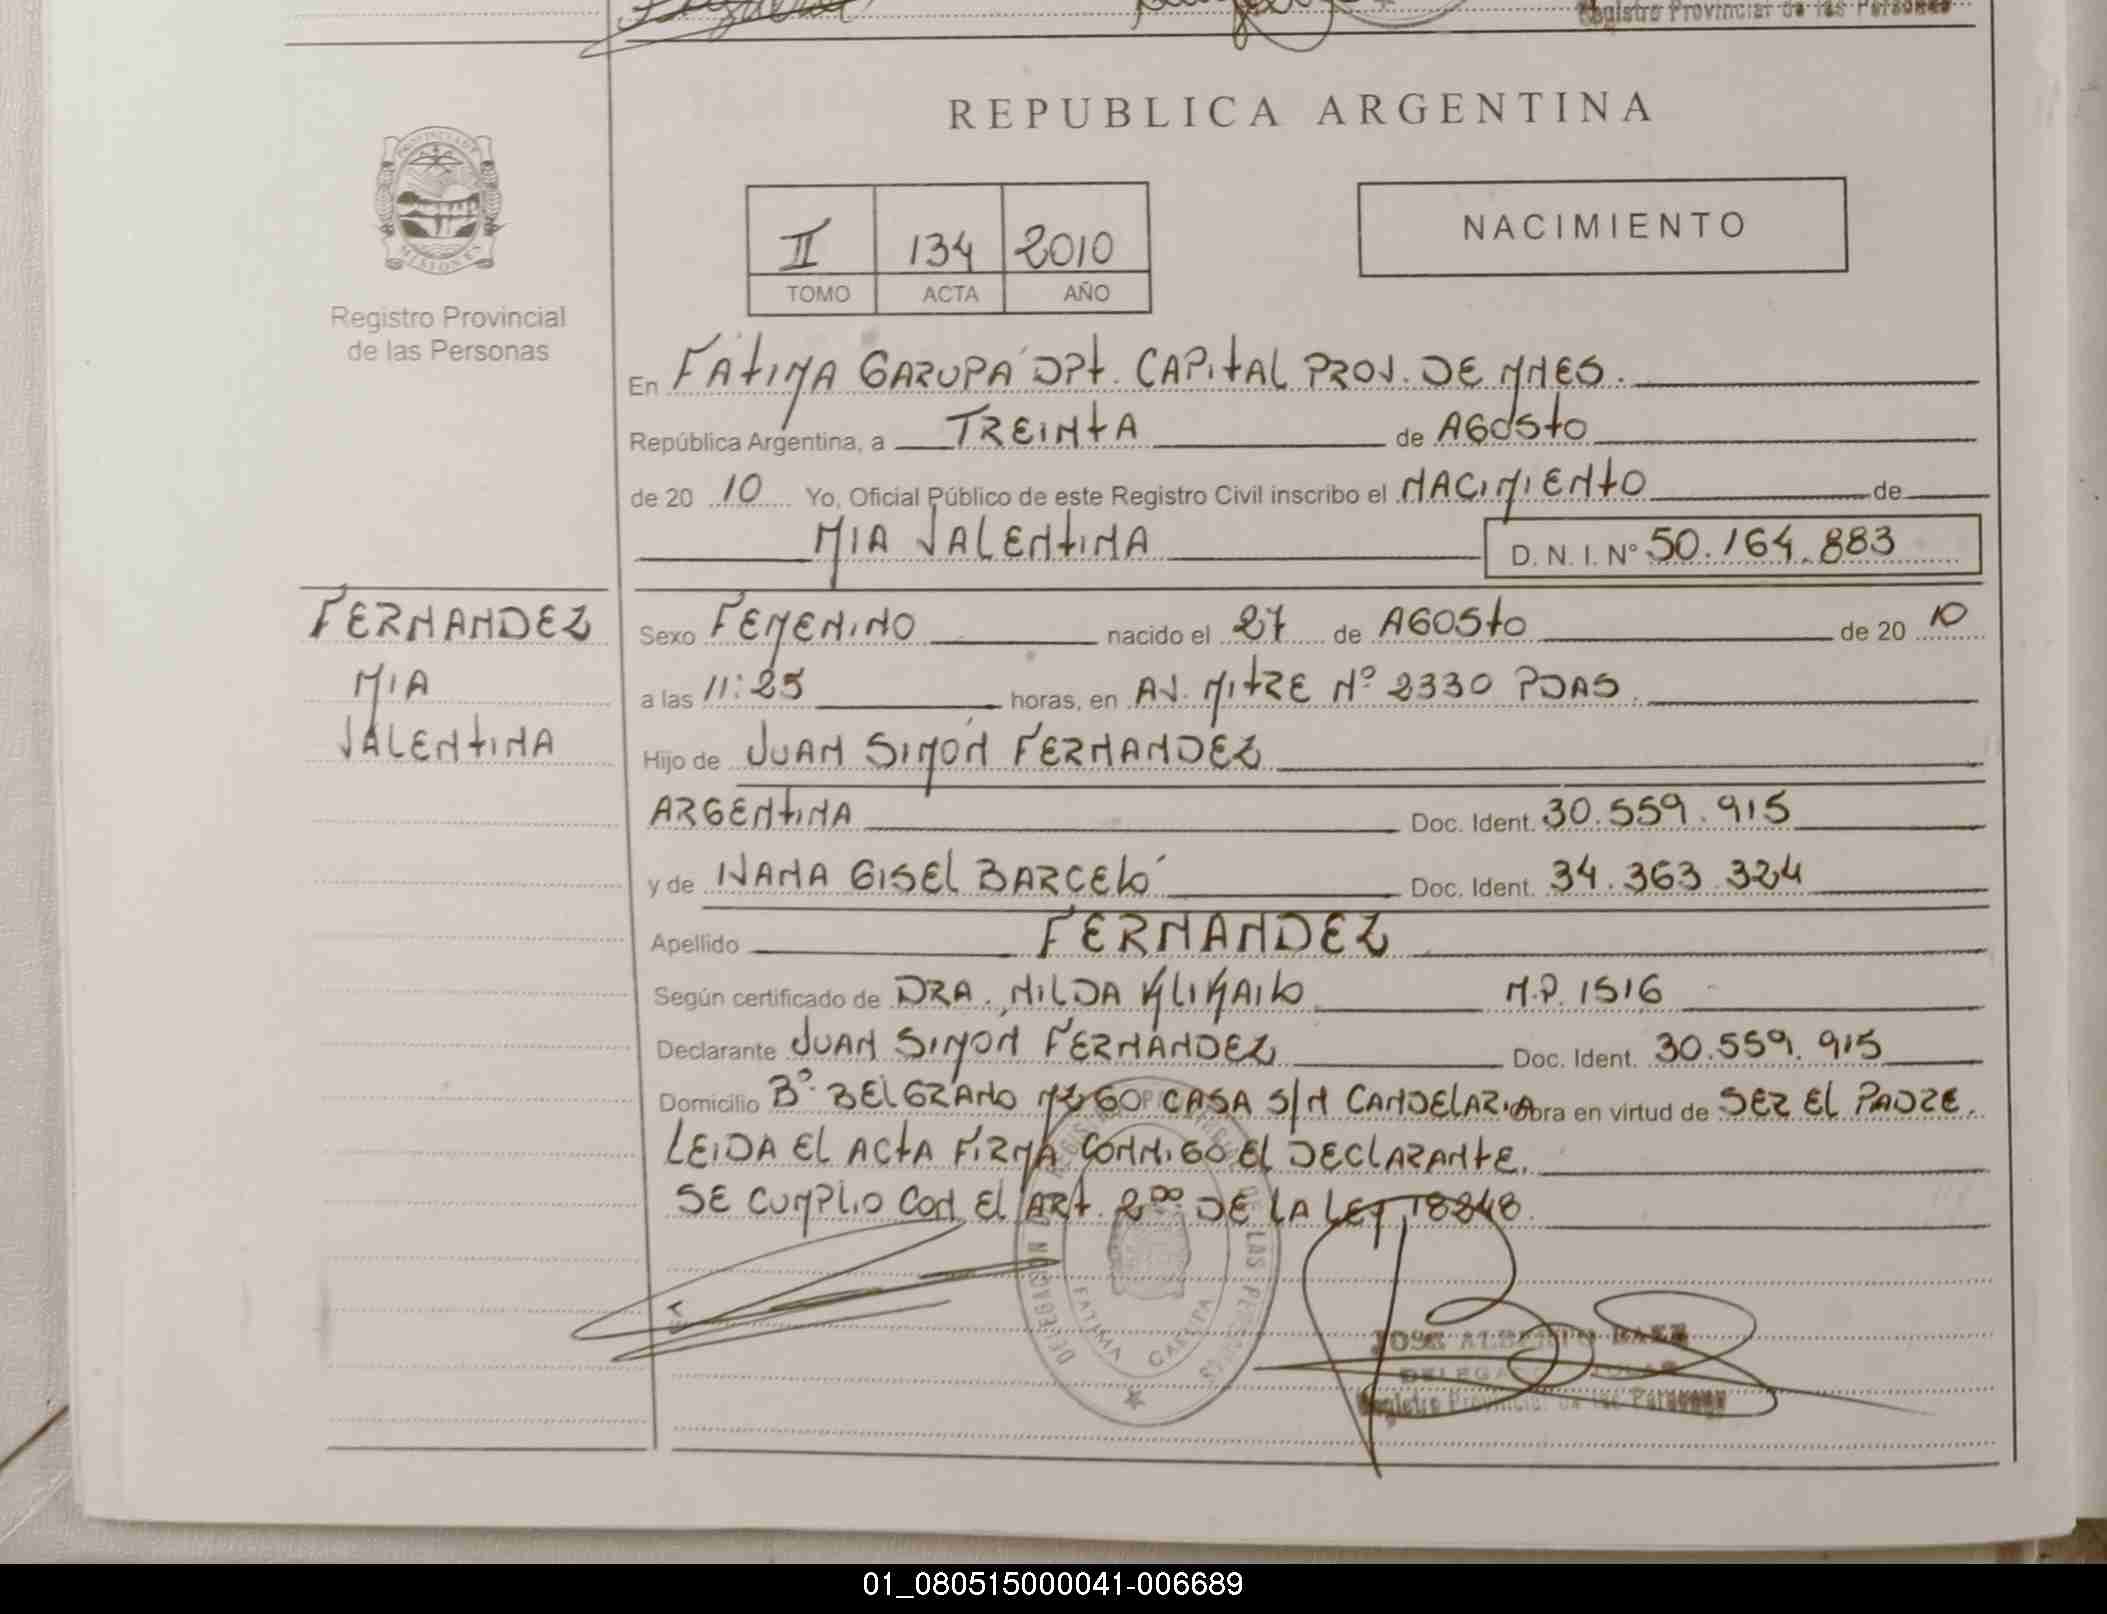 Registro Provincial de las Personas
REPUBLICA ARGENTINA
PROVINCIA DE MISIONES
Registro Provincial
de las Personas
II 134 2010
TOMO ACTA AÑO
NACIMIENTO
En FÁTIMA GARUPÁ DPT. CAPITAL PROV. DE MNES.
República Argentina, a TREINTA de AGOSTO
de 20 10 Yo, Oficial Público de este Registro Civil inscribo el NACIMIENTO de
MIA VALENTINA D. N. I. Nº 50.164.883
FERNANDEZ
MIA
VALENTINA
Sexo FEMENINO nacido el 27 de AGOSTO de 20 10
a las 11:25 horas, en AV. MITRE Nº 2330 PDAS.
Hijo de JUAN SIMÓN FERNANDEZ
ARGENTINA Doc. Ident. 30.559.915
y de IVANA GISEL BARCELÓ Doc. Ident. 34.363.324
Apellido FERNANDEZ
Según certificado de DRA. NILDA M.P. 1516
Declarante JUAN SIMÓN FERNANDEZ Doc. Ident. 30.559.915
Domicilio Bº BELGRANO MZ 60 CASA S/N CANDELARIA obra en virtud de SER EL PADRE.
LEIDA EL ACTA FIRMA CONMIGO EL DECLARANTE.
SE CUMPLIO CON EL ART. 2do DE LA LEY 18248.
DELEGACION FATIMA GARUPA
DE LAS PERSONAS
JOSE ALBERTO BAEZ
Registro Provincial de las Personas
01_080515000041-006689